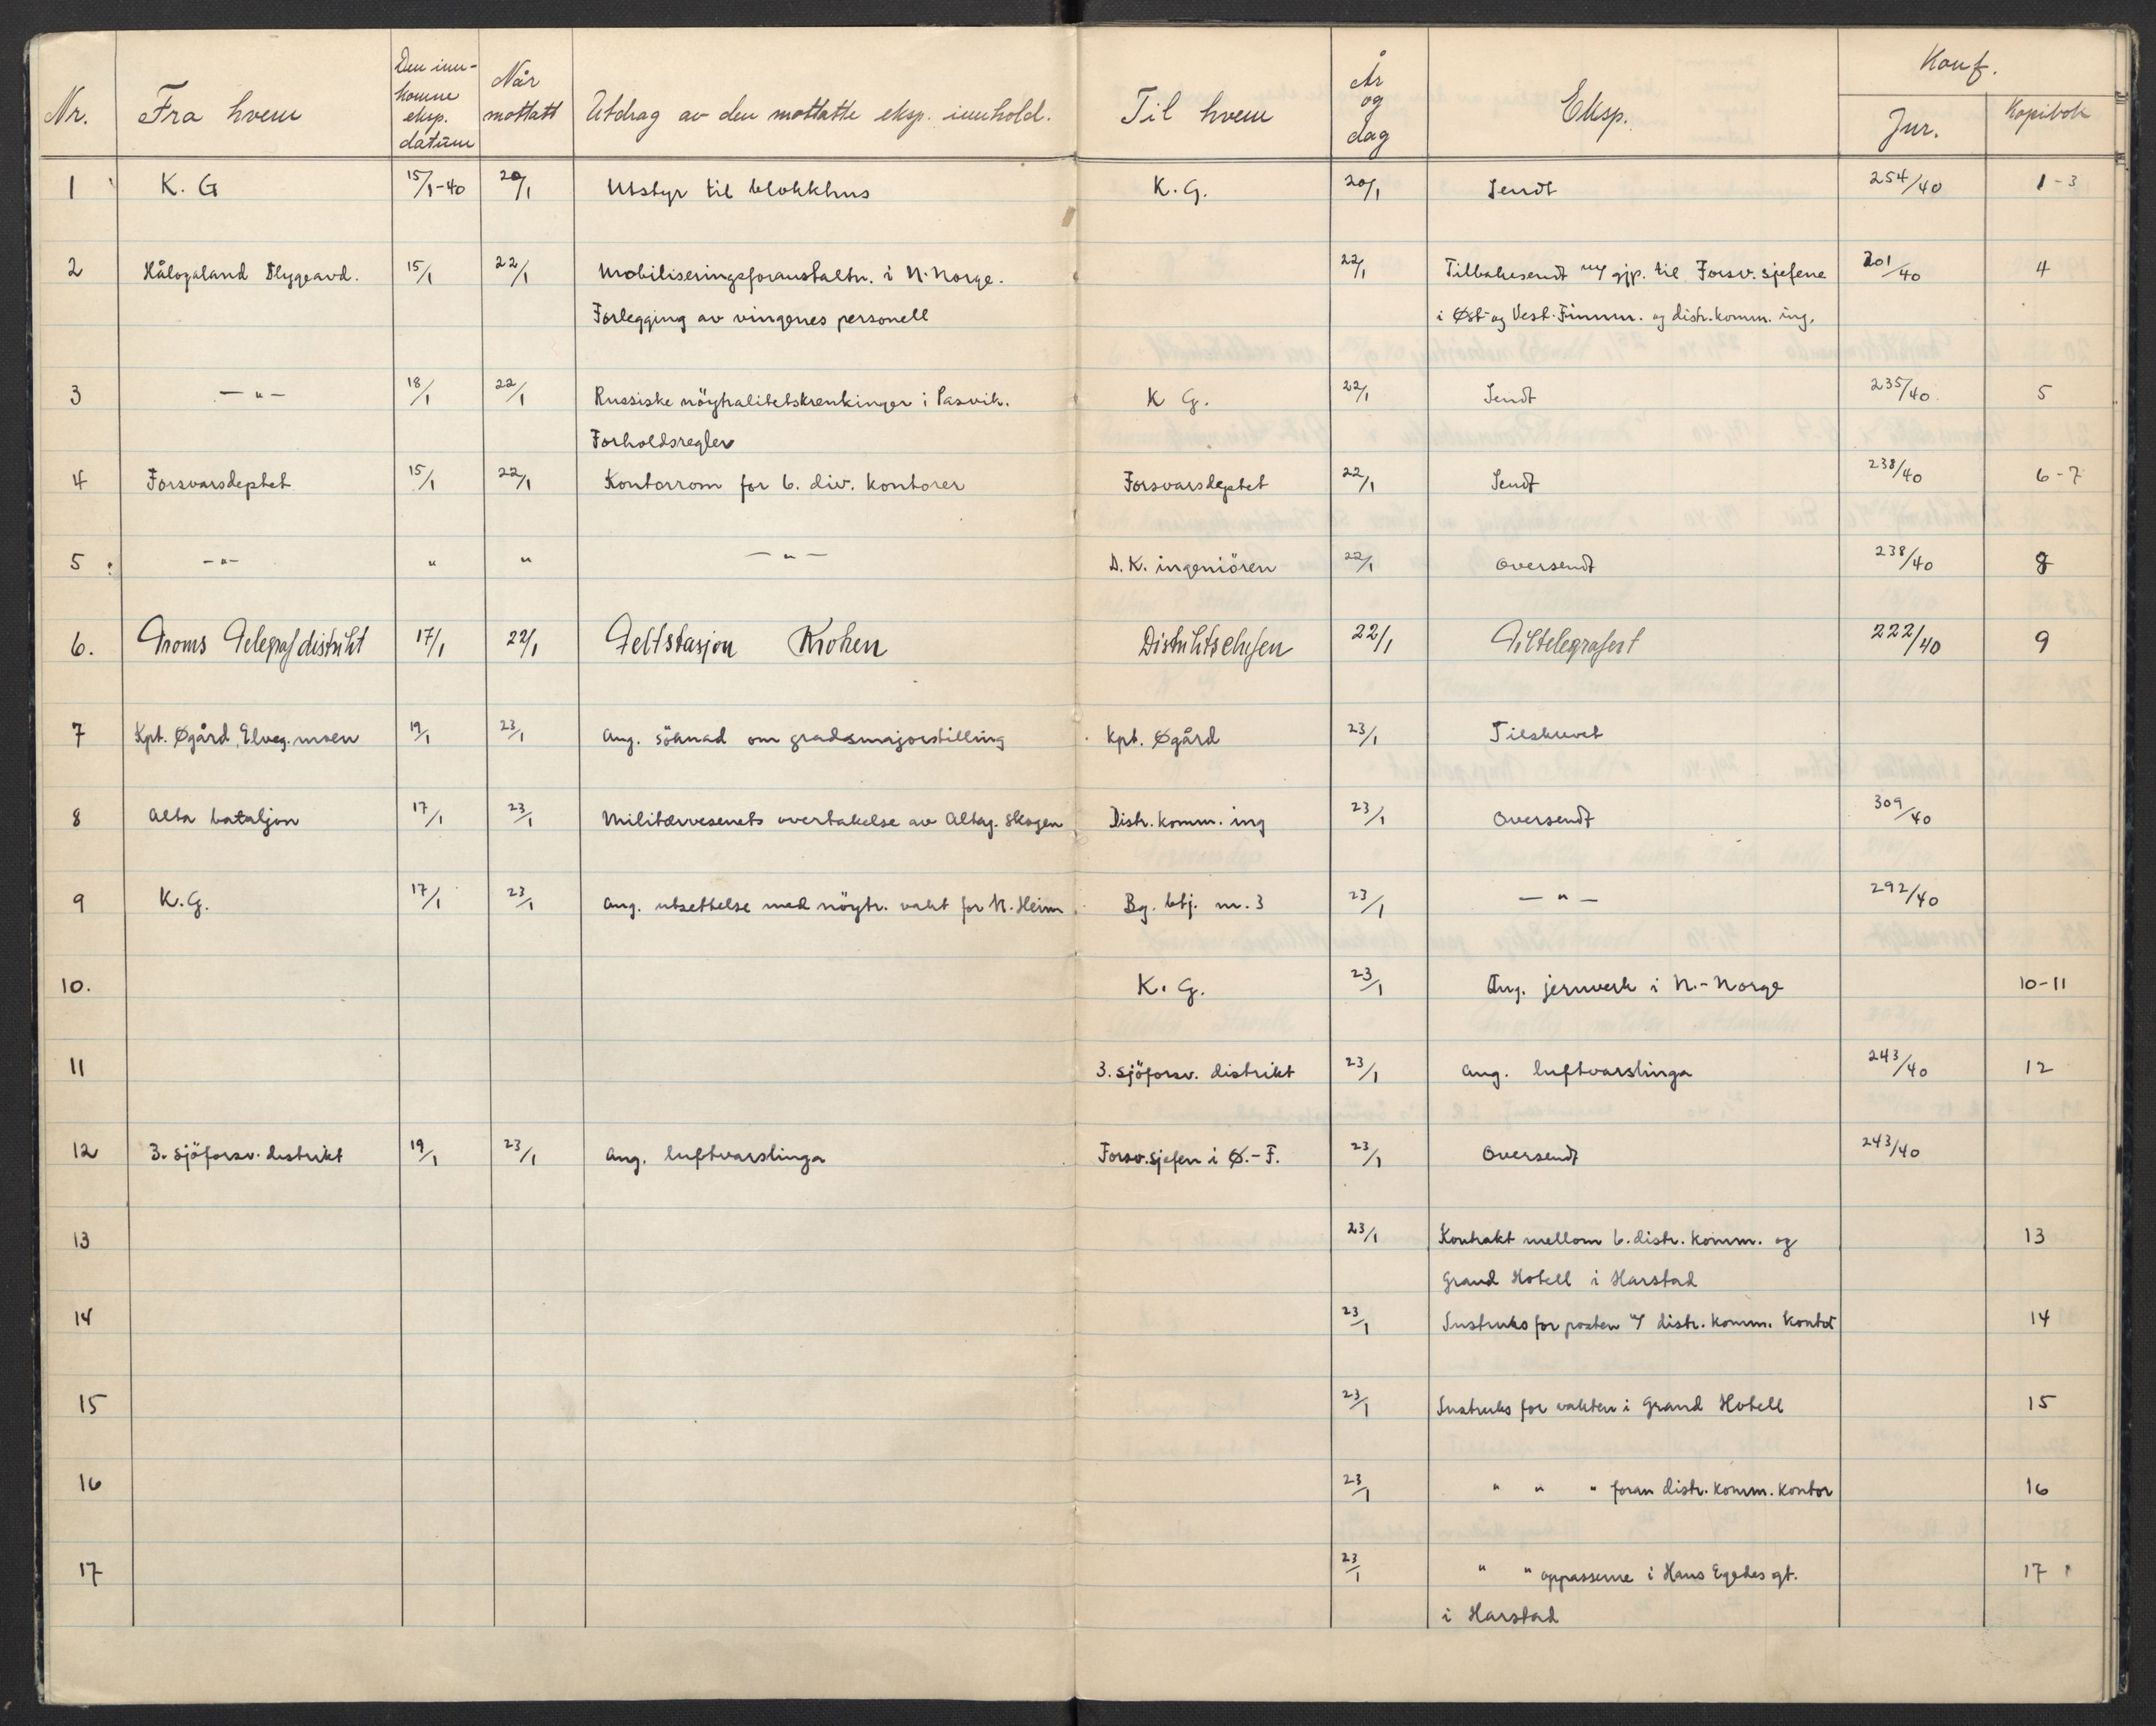 Nr. Fra hvem Den inn- komne eksp. datum Når mottatt Utdrag av den mottatte eksp. innhold. Til hvem År og dag Eksp. Konf. Jnr. Kopibok
1 K. G 15/1-40 20/1 Utstyr til blokkhus K. G. 20/1 Sendt 254/40 1-3
2 Hålogaland Flygeavd. 15/1 22/1 Mobiliseringsforanstaltn. i N. Norge. 22/1 Tilbakesendt m/ gjp. til Forsv. sjefene 201/40 4
Forlegging av vingenes personell i Øst- og Vest-Finnm. og distr. komm. ing.
3 — " — 18/1 22/1 Russiske nöytralitetskrenkinger i Pasvik. K G. 22/1 Sendt 235/40 5
Forholdsregler
4 Forsvarsdeptet 15/1 22/1 Kontorrom for 6. div. kontorer Forsvarsdeptet 22/1 Sendt 238/40 6-7
5 — " — " " — " — D. K. ingeniören 22/1 Oversendt 238/40 8
6. Troms Telegrafdistrikt 17/1 22/1 Feltstasjon Kroken Distriktschefen 22/1 Tiltelegrafert 222/40 9
7 Kpt. Øgård, Elveg.moen 19/1 23/1 Ang. söknad om gradsmajorstilling Kpt. Øgård 23/1 Tilskrevet
8 Alta bataljon 17/1 23/1 Militærvesenets overtakelse av Altag. skogen Distr. komm. ing 23/1 Oversendt 309/40
9 K. G. 17/1 23/1 Ang. utsettelse med nöytr. vakt for N. Heim Bg. btj. nr. 3 23/1 — " — 292/40
10. K. G. 23/1 Ang. jernverk i N.-Norge 10-11
11 3. sjöforsv. distrikt 23/1 Ang. luftvarslinga 243/40 12
12 3. sjöforsv. distrikt 19/1 23/1 Ang. luftvarslinga Forsv.sjefen i Ø.-F. 23/1 Oversendt 243/40
13 23/1 Kontrakt mellom 6. distr. komm. og 13
Grand Hotell i Harstad
14 23/1 Instruks for posten v/ distr. komm. kontor 14
15 23/1 Instruks for vakten i Grand Hotell 15
16 23/1 " " " foran distr. komm. kontor 16
17 23/1 " " oppasserne i Hans Egedes gt. 17
i Harstad